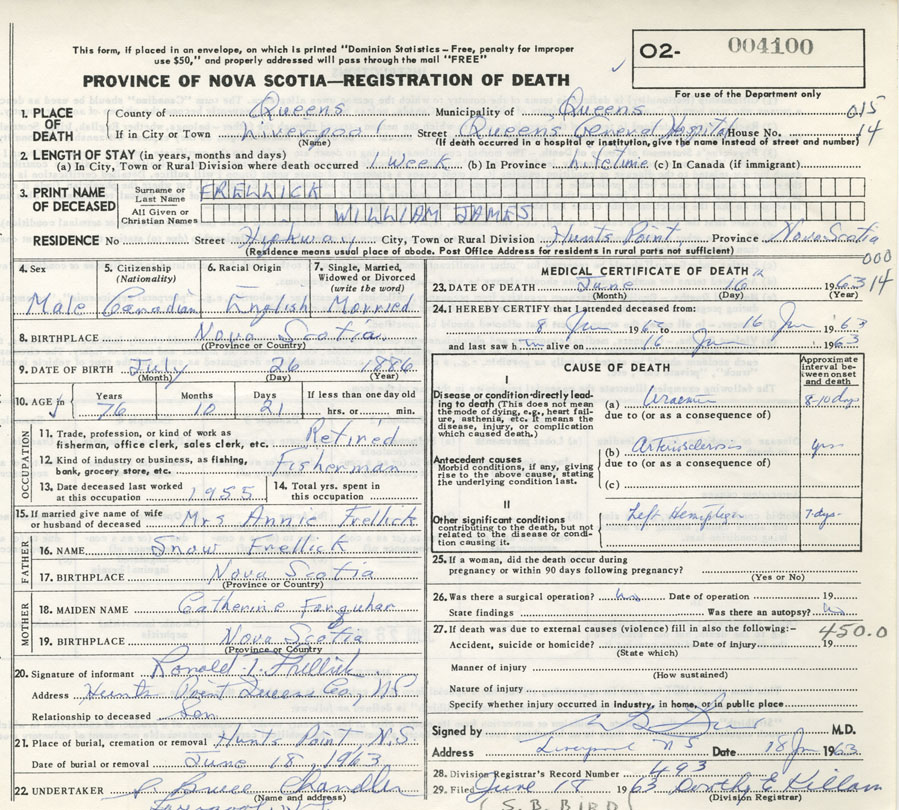 This form, if placed in an envelope, on which is printed "Dominion Statistics – Free, penalty for improper
use $50," and properly addressed will pass through the mail "FREE"
O2- 004100
PROVINCE OF NOVA SCOTIA—REGISTRATION OF DEATH
For use of the Department only
1. PLACE OF DEATH
County of Queens Municipality of Queens 015
If in City or Town Liverpool Street Queens General Hospital House No. 14
(Name) (If death occurred in a hospital or institution, give the name instead of street and number)
2. LENGTH OF STAY (in years, months and days)
(a) In City, Town or Rural Division where death occurred 1 week (b) In Province Lifetime (c) In Canada (if immigrant)
3. PRINT NAME OF DECEASED
Surname or Last Name FRELLICK
All Given or Christian Names WILLIAM JAMES
RESIDENCE No Street Highway City, Town or Rural Division Hunts Point, Province Nova Scotia
(Residence means usual place of abode. Post Office Address for residents in rural parts not sufficient)
000
14
4. Sex Male
5. Citizenship (Nationality) Canadian
6. Racial Origin English
7. Single, Married, Widowed or Divorced (write the word) Married
8. BIRTHPLACE Nova Scotia
((Province or Country)
9. DATE OF BIRTH July 26 1886
(Month) (Day) (Year)
10. AGE in Years 76 Months 10 Days 21 If less than one day old hrs. or min.
OCCUPATION
11. Trade, profession, or kind of work as fisherman, office clerk, sales clerk, etc. Retired
12. Kind of industry or business, as fishing, bank, grocery store, etc. Fisherman
13. Date deceased last worked at this occupation 1955
14. Total yrs. spent in this occupation
15. If married give name of wife or husband of deceased Mrs Annie Frellick
FATHER
16. NAME Snow Frellick
17. BIRTHPLACE Nova Scotia
(Province or Country)
MOTHER
18. MAIDEN NAME Catherine Farquhar
19. BIRTHPLACE Nova Scotia
Province or Country)
20. Signature of informant Ronald L. Frellick
Address Hunts Point Queens Co, NS
Relationship to deceased Son
21. Place of burial, cremation or removal Hunts Point N.S.
Date of burial or removal June 18, 1963
22. UNDERTAKER Bruce Chandler
(Name and address)
Liverpool
MEDICAL CERTIFICATE OF DEATH
23. DATE OF DEATH June 16 1963
(Month) (Day) (Year)
24. I HEREBY CERTIFY that I attended deceased from:
8 Jun 1963 to 16 Jun 1963
and last saw him alive on 16 Jun 1963
CAUSE OF DEATH
Approximate interval between onset and death
I
Disease or condition directly leading to death (This does not mean the mode of dying, e.g., heart failure, asthenia, etc. It means the disease, injury, or complication which caused death.)
(a) Uraemia 8-10 days
due to (or as a consequence of)
Antecedent causes
Morbid conditions, if any, giving rise to the above cause, stating the underlying condition last.
(b) Arteriosclerosis yrs
due to (or as a consequence of)
(c)
II
Other significant conditions
contributing to the death, but not related to the disease or condition causing it.
Left Hemiplegia 7 days
25. If a woman, did the death occur during pregnancy or within 90 days following pregnancy?
(Yes or No)
26. Was there a surgical operation? No Date of operation 19
State findings Was there an autopsy? No
27. If death was due to external causes (violence) fill in also the following:- 450.0
Accident, suicide or homicide? Date of injury 19
(State which)
Manner of injury
(How sustained)
Nature of injury
Specify whether injury occurred in industry, in home, or in public place
Signed by M.D.
Address Liverpool NS Date 18 Jun 1963
28. Division Registrar's Record Number 493
29. Filed June 18 1963 Dorothy E Killam
(Division Registrar)
(S. B. BIRD)